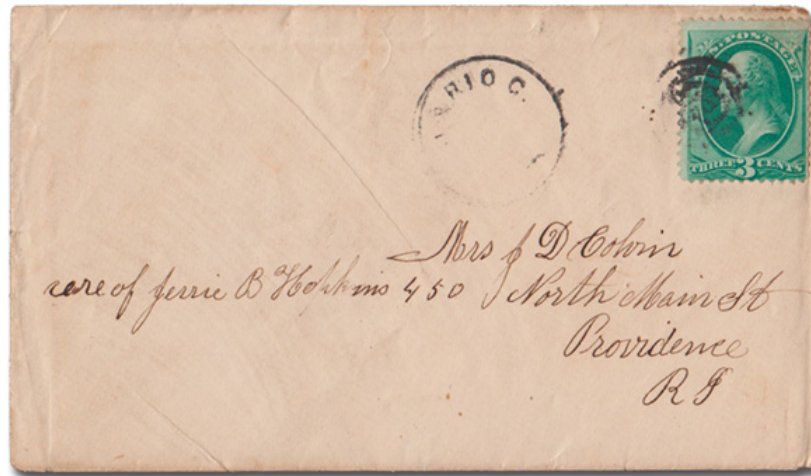 RIO C.
U.S. POSTAGE
THREE 3 CENTS
Mrs J D Colvin
care of Jerrie B Hopkins 450 North Main St
Providence
R I